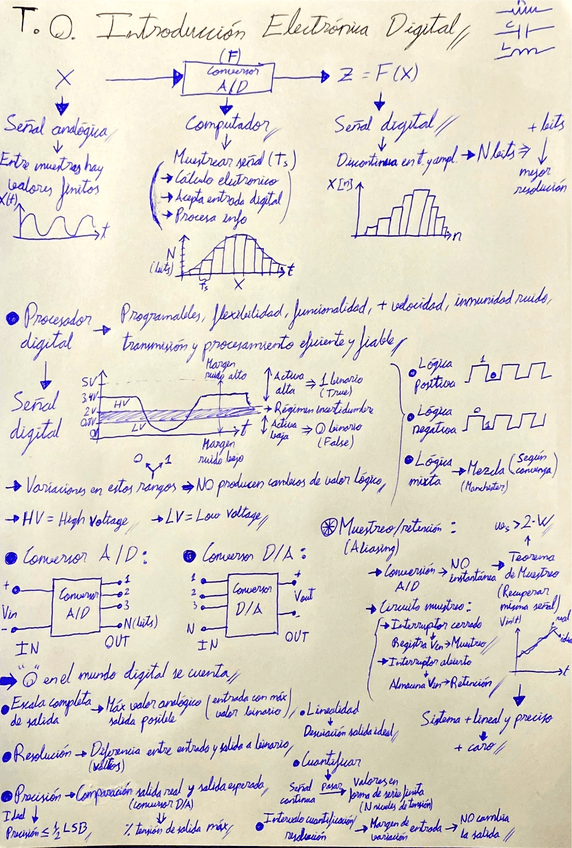 T. 0. Introducción Electrónica Digital
(F)
X → Conversor A/D → Z = F(X)
Señal analógica
Entre muestras hay
valores finitos
X(t)
t
Computador
Muestrear señal (Ts)
→ Calculo electronico
→ Acepta entrada digital
→ Procesa info
N
(bits)
Ts
X
t
Señal digital
Discontinua en t. y ampl. → N bits ⇒
+ bits
mejor
resolución
X[n]
n
● Procesador
digital
→ Programables, flexibilidad, funcionalidad, + velocidad, inmunidad ruido,
transmisión y procesamiento eficiente y fiable
Señal
digital
5V
3.4V
2V
0.8V
0V
HV
LV
t
Margen
ruido alto
Margen
ruido bajo
Activa
alta
⇒ 1 binario
(True)
→ Régimen incertidumbre
Activa
baja
⇒ 0 binario
(False)
0 1
● Lógica
positiva
1
0
● Lógica
negativa
0
1
● Lógica
mixta
→ Mezcla (Según
convenga)
(Manchester)
→ Variaciones en estos rangos ⇒ NO producen cambios de valor lógico
→ HV = High voltage → LV = Low voltage
● Conversor A/D:
+
Vin
-
Conversor
A/D
1
2
3
N(bits)
IN OUT
● Conversor D/A:
1
2
3
N
Conversor
D/A
+
Vout
-
IN OUT
⊛ Muestreo/retención:
(Aliasing)
ws > 2·W
Teorema
de Muestreo
(Recuperar
misma señal)
→ Conversión
A/D
→ NO
instantánea
→ Circuito muestreo:
→ Interruptor cerrado
Registra Vin → Muestreo
→ Interruptor abierto
Almacena Vin → Retención
Vin(t)
real
t
Sistema + lineal y preciso
+ caro
→ "0" en el mundo digital se cuenta
● Escala completa
de salida
→ Máx valor analógico
salida posible
(entrada con máx
valor binario)
● Resolución → Diferencia entre entrada y salida a binario
(voltios)
● Precisión → Comparación salida real y salida esperada
(conversor D/A)
Ideal
Precisión ≤ ½ LSB
% tensión de salida máx
● Linealidad
Desviación salida ideal
● Cuantificar
Señal
continua
pasar
Valores en
forma de serie finita
(N niveles de tensión)
● Intervalo cuantificación/
resolución
→ Margen de entrada
variación
→ NO cambia
la salida